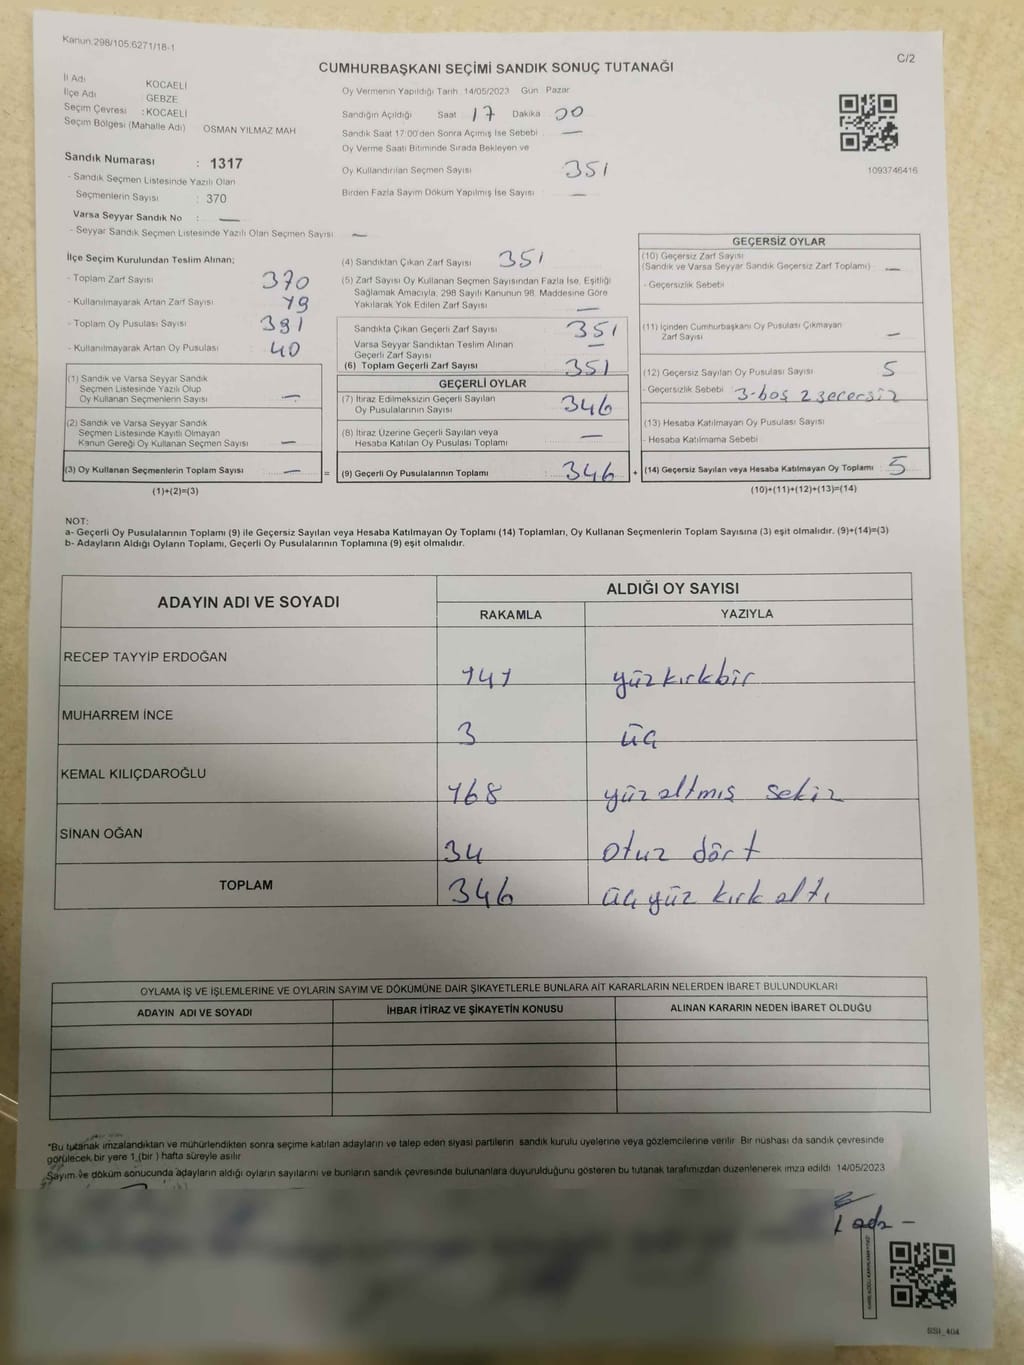 Kanun:298/105:6271/18-1
C/2
CUMHURBAŞKANI SEÇİMİ SANDIK SONUÇ TUTANAĞI
İl Adı KOCAELİ
İlçe Adı GEBZE
Seçim Çevresi : KOCAELİ
Seçim Bölgesi (Mahalle Adı) OSMAN YILMAZ MAH
Oy Vermenin Yapıldığı Tarih 14/05/2023 Gün Pazar
Sandığın Açıldığı Saat 17 Dakika 00
Sandık Saat 17:00'den Sonra Açımış İse Sebebi —
Oy Verme Saati Bitiminde Sırada Bekleyen ve
Oy Kullandırılan Seçmen Sayısı 351
Birden Fazla Sayım Döküm Yapılmış İse Sayısı —
1093746416
Sandık Numarası : 1317
- Sandık Seçmen Listesinde Yazılı Olan
Seçmenlerin Sayısı : 370
Varsa Seyyar Sandık No : —
- Seyyar Sandık Seçmen Listesinde Yazılı Olan Seçmen Sayısı —
İlçe Seçim Kurulundan Teslim Alınan;
- Toplam Zarf Sayısı 370
- Kullanılmayarak Artan Zarf Sayısı 19
- Toplam Oy Pusulası Sayısı 391
- Kullanılmayarak Artan Oy Pusulası 40
(1) Sandık ve Varsa Seyyar Sandık
Seçmen Listesinde Yazılı Olup
Oy Kullanan Seçmenlerin Sayısı : —
(2) Sandık ve Varsa Seyyar Sandık
Seçmen Listesinde Kayıtlı Olmayan
Kanun Gereği Oy Kullanan Seçmen Sayısı —
(3) Oy Kullanan Seçmenlerin Toplam Sayısı —
(1)+(2)=(3)
(4) Sandıktan Çıkan Zarf Sayısı 351
(5) Zarf Sayısı Oy Kullanan Seçmen Sayısından Fazla İse, Eşitliği
Sağlamak Amacıyla, 298 Sayılı Kanunun 98. Maddesine Göre
Yakılarak Yok Edilen Zarf Sayısı —
Sandıkta Çıkan Geçerli Zarf Sayısı 351
Varsa Seyyar Sandıktan Teslim Alınan
Geçerli Zarf Sayısı —
(6) Toplam Geçerli Zarf Sayısı 351
GEÇERLİ OYLAR
(7) İtiraz Edilmeksizin Geçerli Sayılan
Oy Pusulalarının Sayısı 346
(8) İtiraz Üzerine Geçerli Sayılan veya
Hesaba Katılan Oy Pusulası Toplamı —
= (9) Geçerli Oy Pusulalarının Toplamı 346 +
GEÇERSİZ OYLAR
(10) Geçersiz Zarf Sayısı
(Sandık ve Varsa Seyyar Sandık Geçersiz Zarf Toplamı) —
- Geçersizlik Sebebi
(11) İçinden Cumhurbaşkanı Oy Pusulası Çıkmayan
Zarf Sayısı —
(12) Geçersiz Sayılan Oy Pusulası Sayısı 5
- Geçersizlik Sebebi 3-boş 2 gecersiz
(13) Hesaba Katılmayan Oy Pusulası Sayısı
- Hesaba Katılmama Sebebi
(14) Geçersiz Sayılan veya Hesaba Katılmayan Oy Toplamı : 5
(10)+(11)+(12)+(13)=(14)
NOT:
a- Geçerli Oy Pusulalarının Toplamı (9) ile Geçersiz Sayılan veya Hesaba Katılmayan Oy Toplamı (14) Toplamları, Oy Kullanan Seçmenlerin Toplam Sayısına (3) eşit olmalıdır. (9)+(14)=(3)
b- Adayların Aldığı Oyların Toplamı, Geçerli Oy Pusulalarının Toplamına (9) eşit olmalıdır.
ADAYIN ADI VE SOYADI ALDIĞI OY SAYISI
RAKAMLA YAZIYLA
RECEP TAYYİP ERDOĞAN 141 yüzkırkbir
MUHARREM İNCE 3 üç
KEMAL KILIÇDAROĞLU 168 yüzaltmış sekiz
SİNAN OĞAN 34 otuz dört
TOPLAM 346 üçyüz kırk altı
OYLAMA İŞ VE İŞLEMLERİNE VE OYLARIN SAYIM VE DÖKÜMÜNE DAİR ŞİKAYETLERLE BUNLARA AİT KARARLARIN NELERDEN İBARET BULUNDUKLARI
ADAYIN ADI VE SOYADI İHBAR İTİRAZ VE ŞİKAYETİN KONUSU ALINAN KARARIN NEDEN İBARET OLDUĞU
*Bu tutanak imzalandıktan ve mühürlendikten sonra seçime katılan adayların ve talep eden siyasi partilerin sandık kurulu üyelerine veya gözlemcilerine verilir. Bir nüshası da sandık çevresinde
görülecek bir yere 1 (bir) hafta süreyle asılır
Sayım ve döküm sonucunda adayların aldığı oyların sayılarını ve bunların sandık çevresinde bulunanlara duyurulduğunu gösteren bu tutanak tarafımızdan düzenlenerek imza edildi 14/05/2023